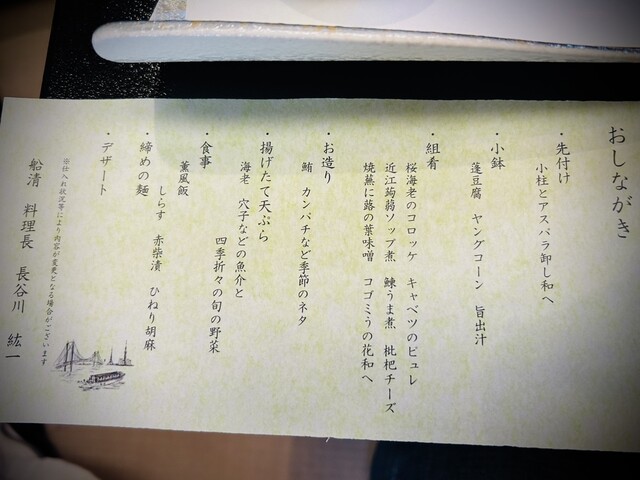 おしながき
・先付け
小柱とアスパラ卸し和へ
・小鉢
蓬豆腐　ヤングコーン　旨出汁
・組肴
桜海老のコロッケ　キャベツのピュレ
近江蒟蒻ソップ煮　鰊うま煮　枇杷チーズ
焼蕪に蕗の葉味噌　コゴミうの花和へ
・お造り
鮪　カンパチなど季節のネタ
・揚げたて天ぷら
海老　穴子などの魚介と
四季折々の旬の野菜
・食事
薫風飯
しらす　赤柴漬　ひねり胡麻
・締めの麺
・デザート
※仕入れ状況等により内容が変更となる場合がございます
船清　料理長　長谷川　紘一